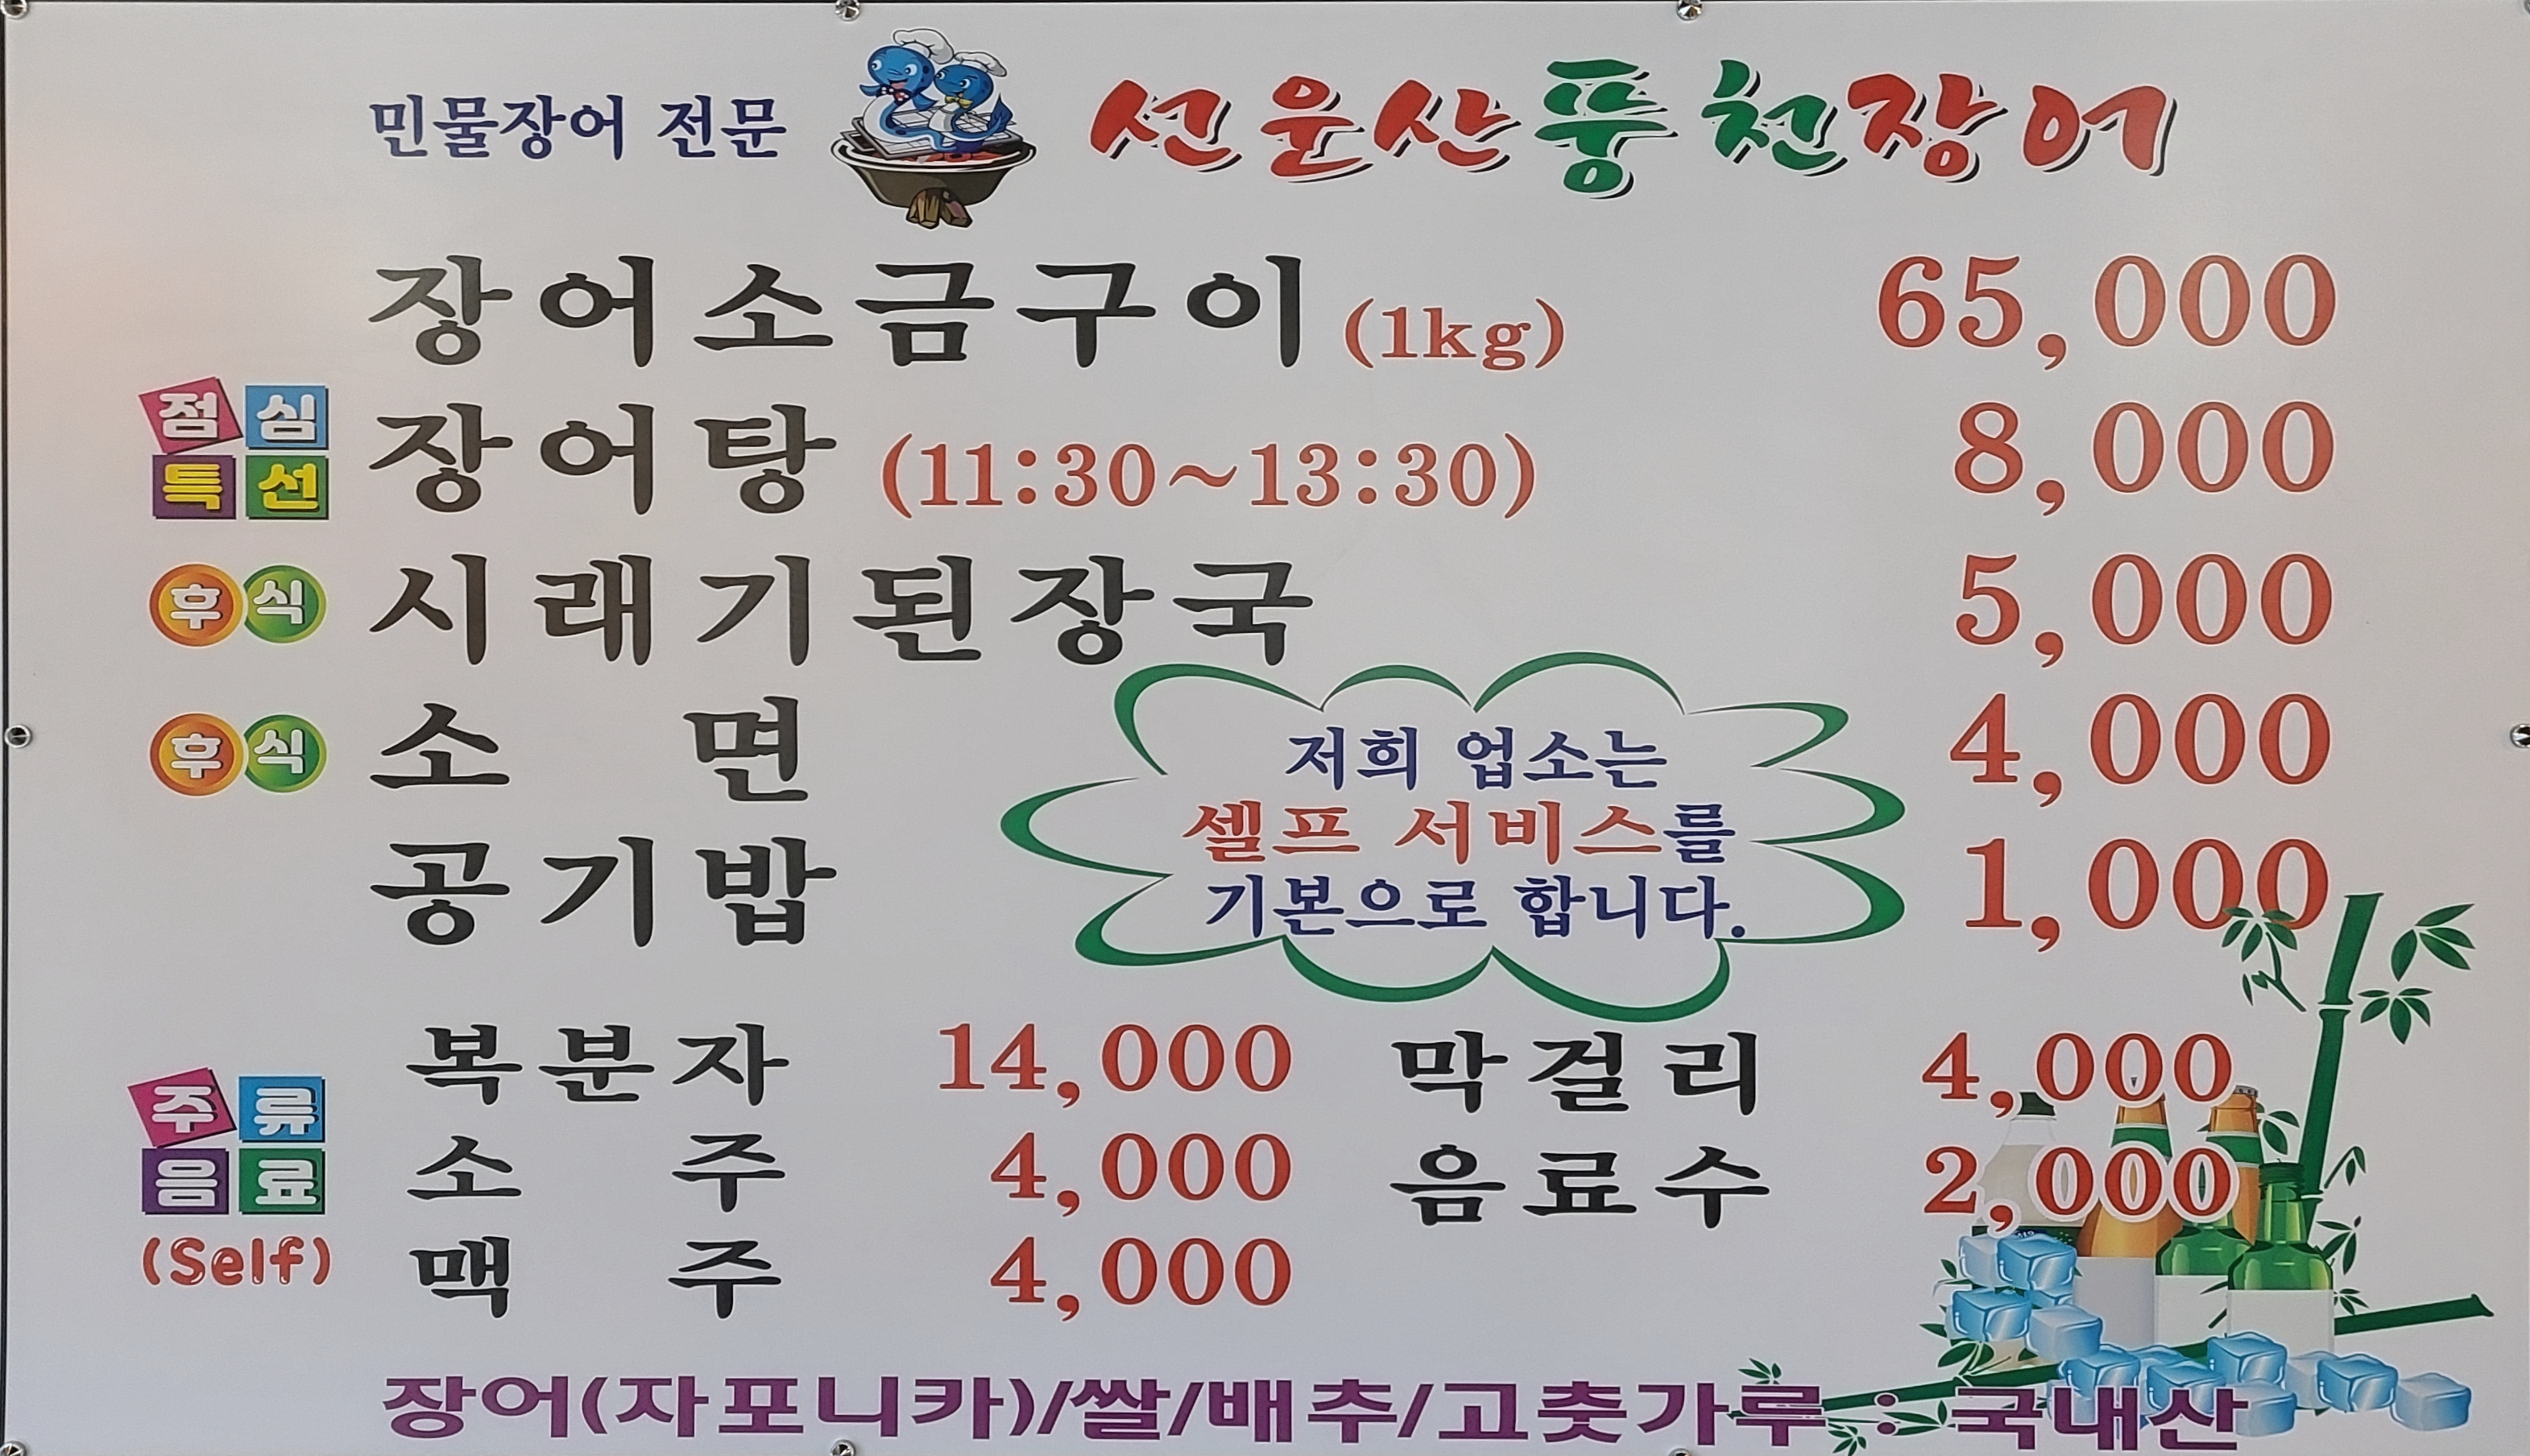 민물장어 전문 선운산풍천장어
장어소금구이 (1kg) 65,000
점심특선 장어탕 (11:30~13:30) 8,000
후식 시래기된장국 5,000
후식 소면 4,000
공기밥 1,000
저희 업소는
셀프 서비스를
기본으로 합니다.
주류음료 (Self)
복분자 14,000 막걸리 4,000
소주 4,000 음료수 2,000
맥주 4,000
장어(자포니카)/쌀/배추/고춧가루 : 국내산